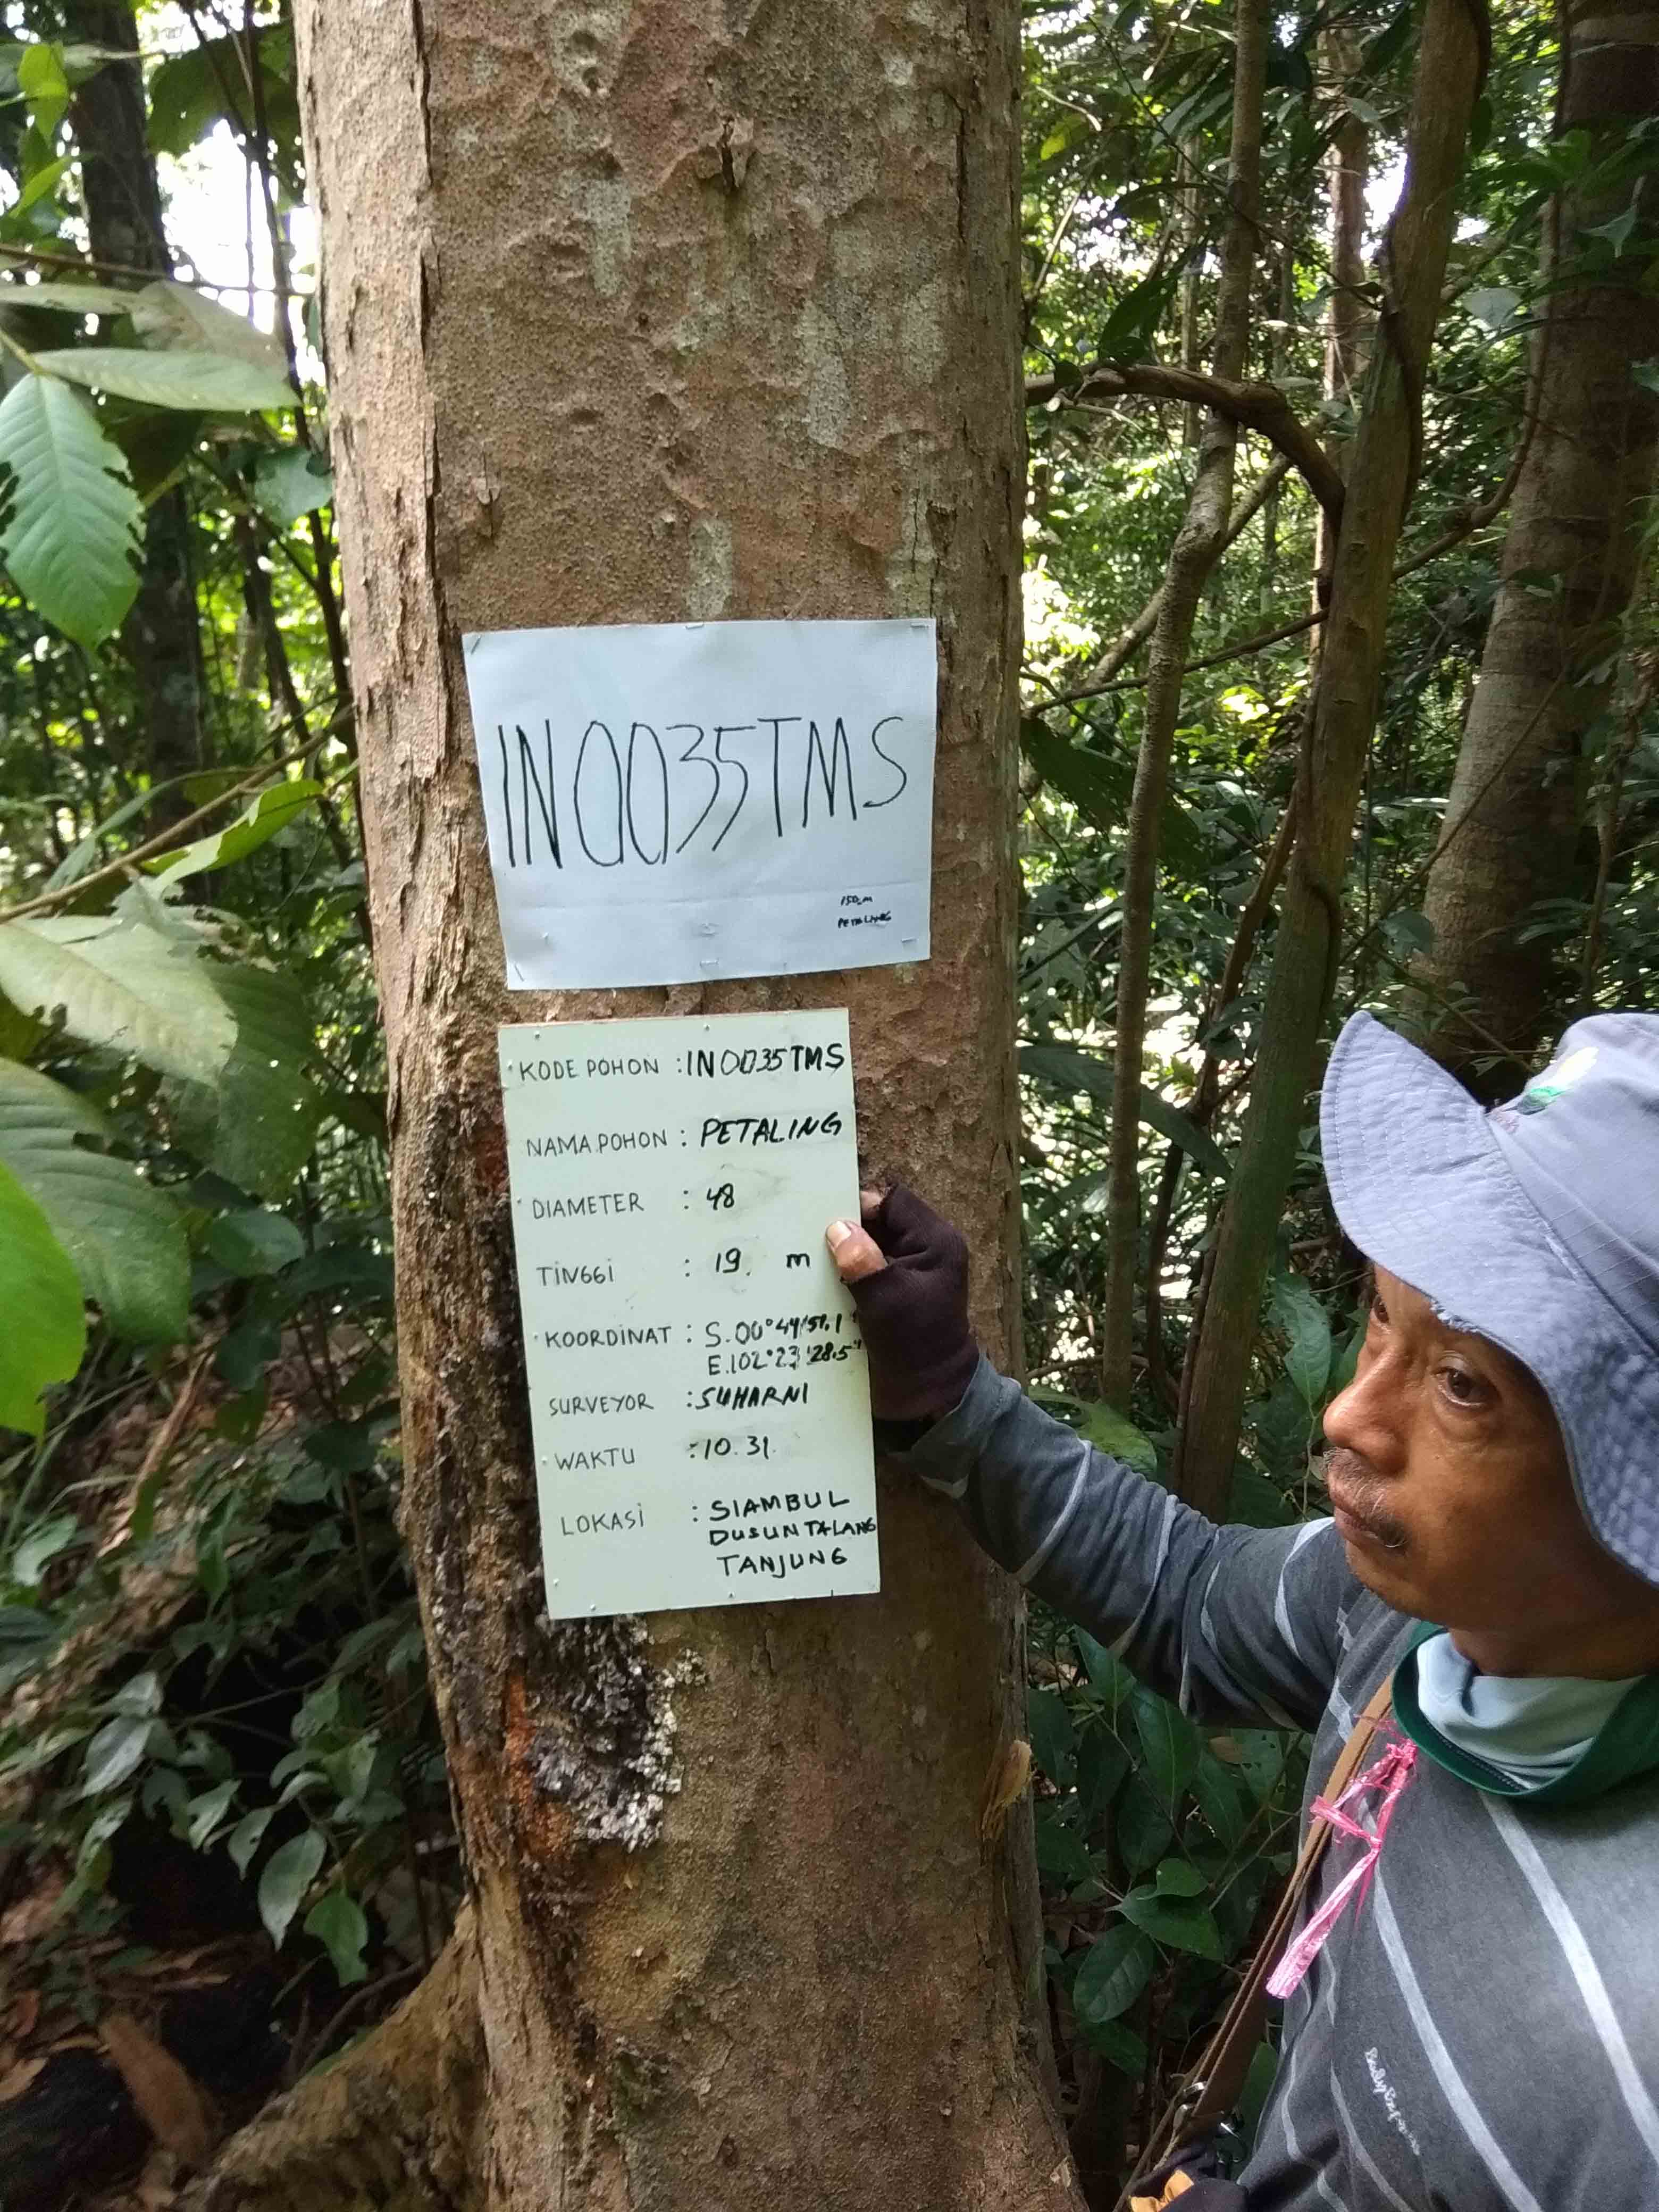 IN0035TMS
150 m
PETALING
KODE POHON : IN0035TMS
NAMA POHON : PETALING
DIAMETER : 48
TINGGI : 19 m
KOORDINAT : S.00°44'51.1"
E.102°23'28.5"
SURVEYOR : SUHARNI
WAKTU : 10.31
LOKASI : SIAMBUL
DUSUN TALANG
TANJUNG